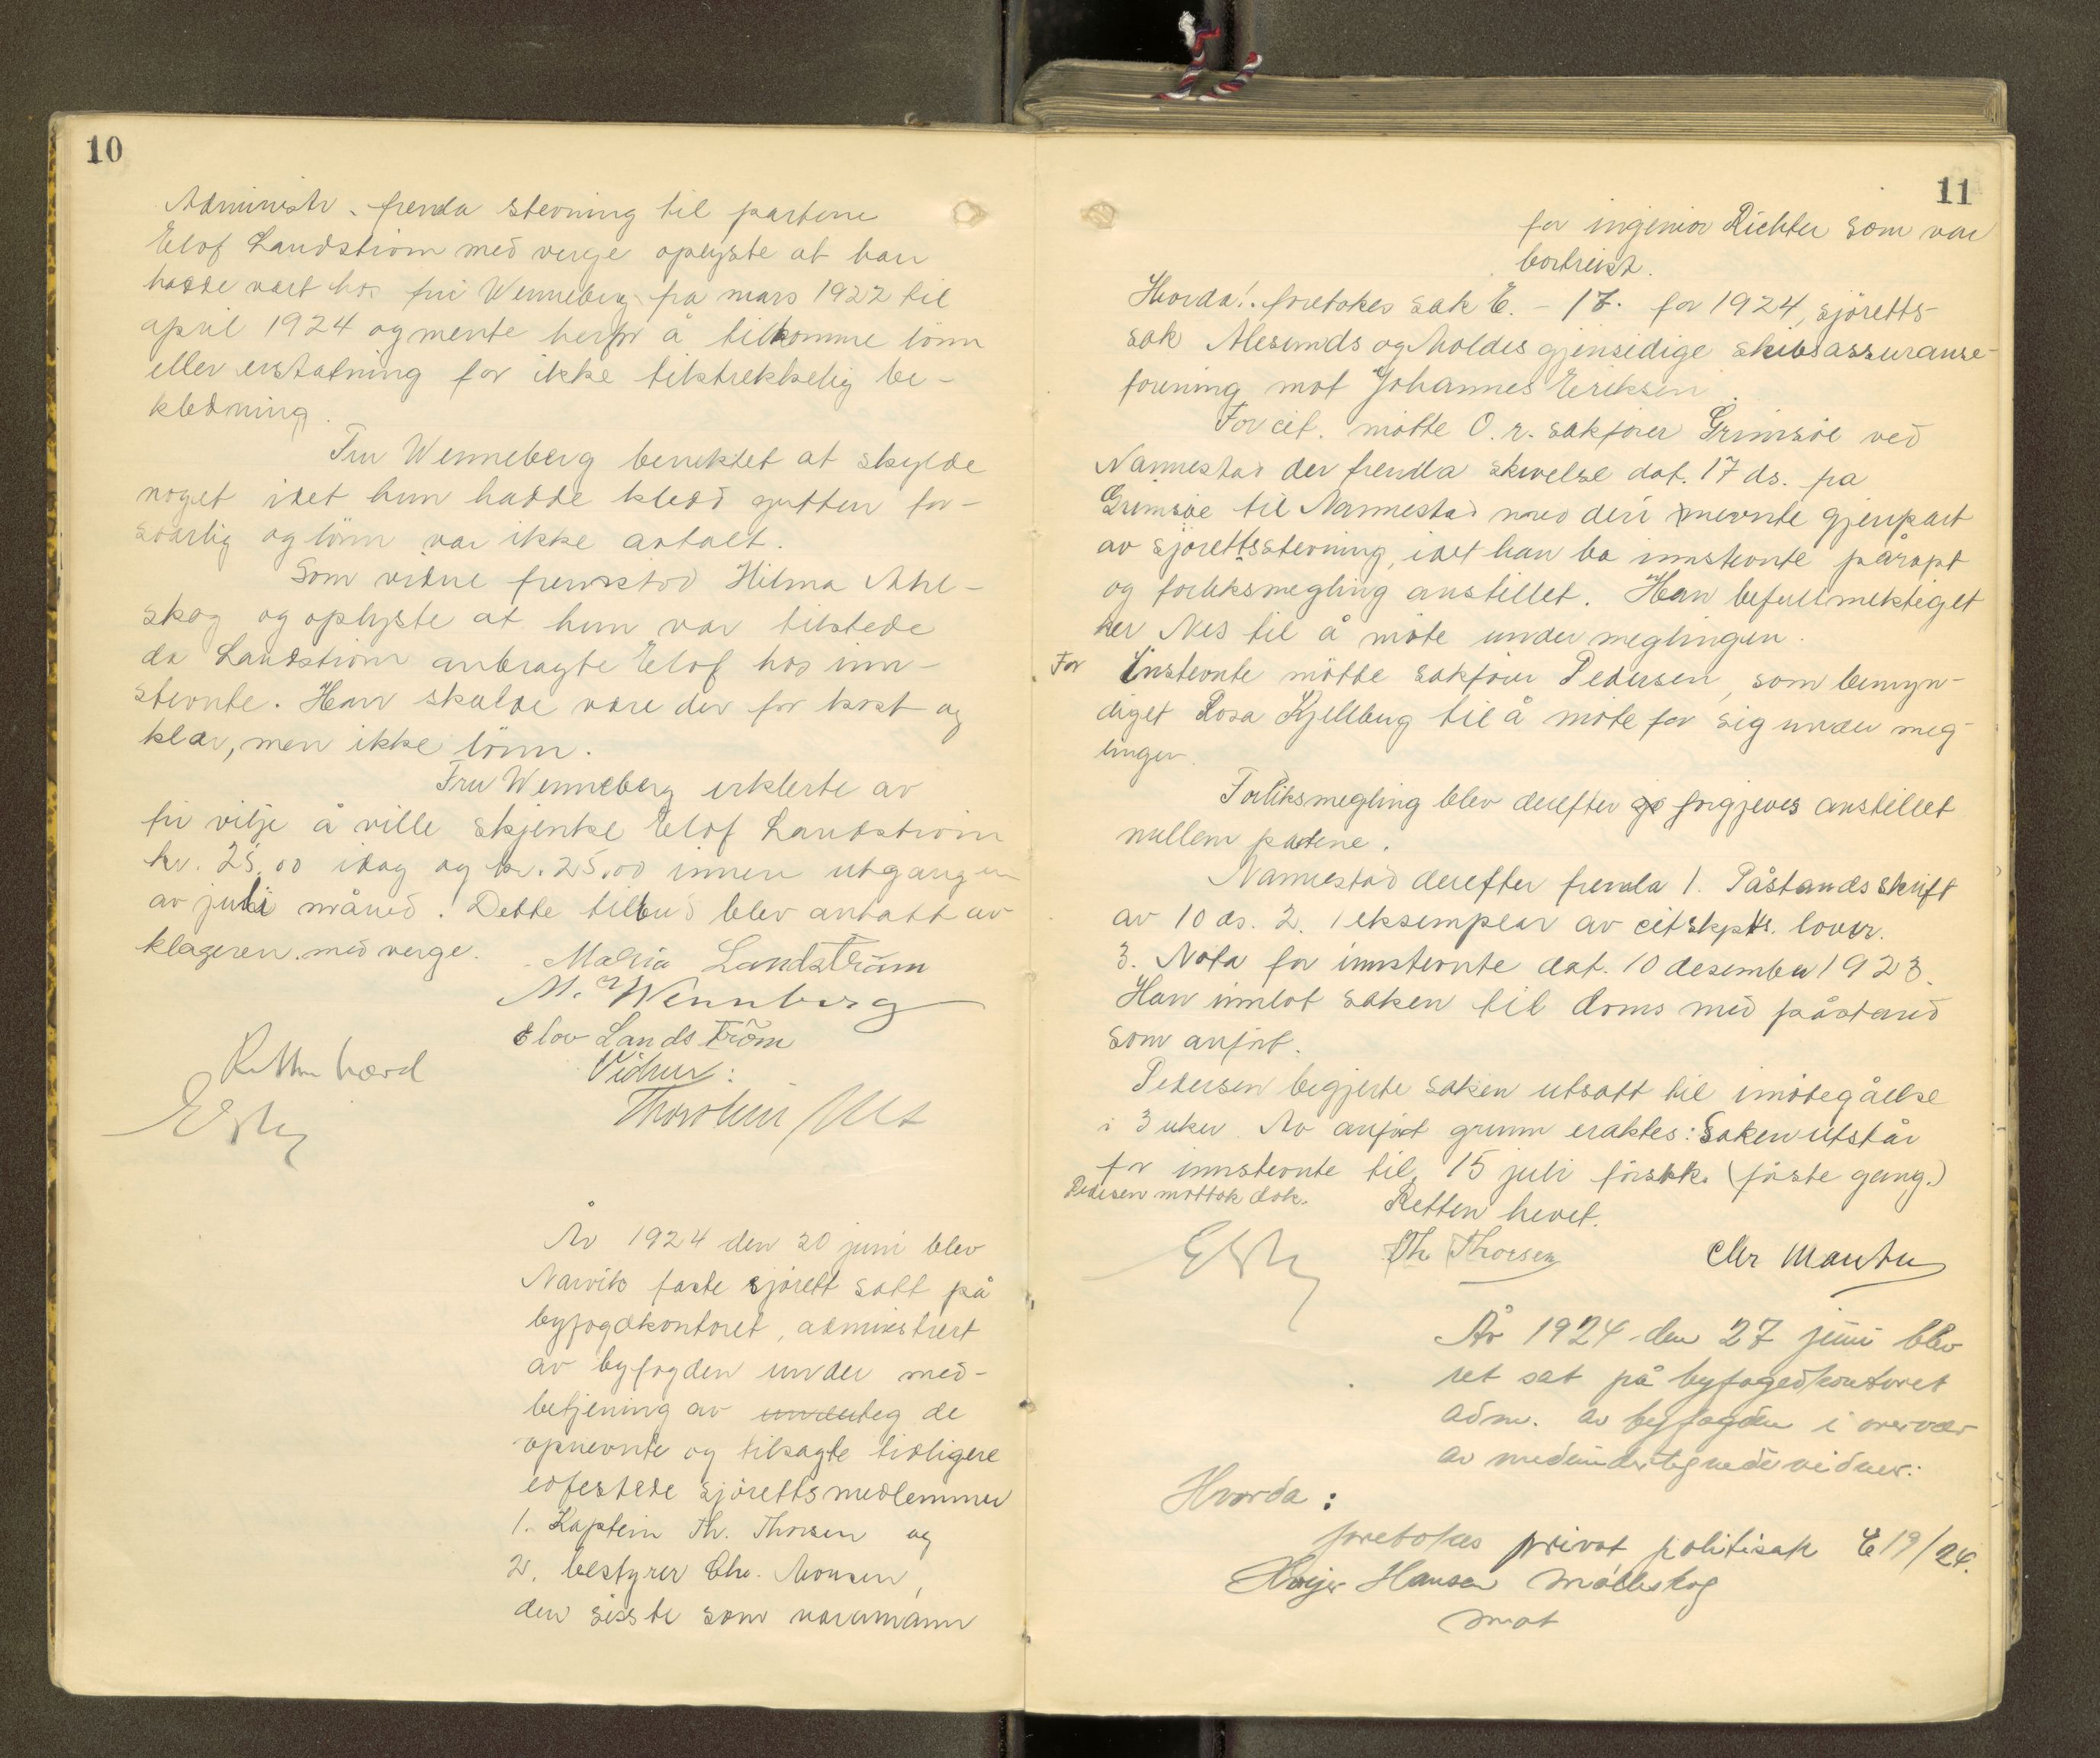 10
Administr. fremla stevning til partene
Elof Landström med verge oplyste at han
hadde vært hos fru Wenneberg fra mars 1922 til
april 1924 og mente herfor å tilkomme lönn
eller erstatning for ikke tilstrekkelig be-
kledning.
Fru Wenneberg benektet at skylde
noget idet hun hadde kledd gutten for-
svarlig og lönn var ikke avtalt.
Som vidne fremstod Hilma Ahl-
skog og oplyste at hun var tilstede
da Landström anbragte Elof hos inn-
stevnte. Han skulde være der for kost og
klær, men ikke lönn.
Fru Wenneberg erklerte av
fri vilje å ville skjenke Elof Landström
kr. 25,00 idag og kr. 25,00 innen utgangen
av juli måned. Dette tilbud blev antatt av
klageren med verge.
Maria Landström
M. Wennberg
Elov Landström
Retten hævd
Vidner:
År 1924 den 20 juni blev
Narvik faste sjörett satt på
byfogdkontoret, administrert
av byfogden under med-
betjening av underteg de
opnevnte og tilsagte tidligere
edfestede sjörettsmedlemmer
1. Kaptein Th. Thorsen og
2. bestyrer Chr. Monsen,
den siste som varamann
11
for ingeniör Richter som var
bortreist.
Hvorda! foretokes sak E. - 17. for 1924, sjöretts-
sak Alesunds og Moldes gjensidige skibsassuranse-
forening mot Johannes Eriksen.
For cit. mötte O. r. sakförer Grimsöe ved
Nannestad der fremla skrivelse dat. 17 ds. fra
Grimsöe til Nannestad med deri nevnte gjenpart
av sjörettsstevning, idet han ba innstevnte påropt
og forliksmegling anstillet. Han befullmektiget
her Nes til å möte under meglingen.
For Innstevnte mötte sakförer Pedersen, som bemyn-
diget Rosa Kjellberg til å möte for sig under meg-
lingen.
Forliksmegling blev derefter go forgjeves anstillet
mellem partene.
Nannestad derefter fremla 1. Påstandsskrift
av 10 ds. 2. 1 eksemplar av citskpts. lover.
3. Nota for innstevnte dat. 10 desember 1923.
Han innlot saken til doms med påstand
som anfört.
Pedersen begjerte saken utsatt til imötegåelse
i 3 uker. Av anfört grunn eraktes: Saken utstår
for innstevnte til 15 juli förstk. (förste gang.)
Pedersen mottok dok.
Retten hevet.
Th Thorsen
År 1924 den 27 juni blev
ret sat på byfogedkontoret
adm. av byfogden i overvær
av medundertegnede vidner:
Hvorda:
foretokes privat politisak E 19/24.
Hansen
mot